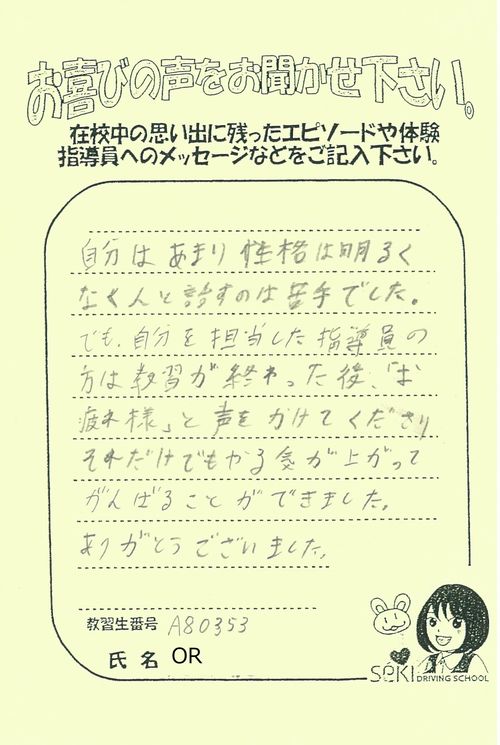 お喜びの声をお聞かせ下さい。
在校中の思い出に残ったエピソードや体験
指導員へのメッセージなどをご記入下さい。
自分はあまり性格は明るく
なく人と話すのは苦手でした。
でも、自分を担当した指導員の
方は教習が終わった後、「お
疲れ様」と声をかけてくださり
それだけでもやる気が上がって
がんばることができました。
ありがとうございました。
教習生番号 A80353
氏名 OR
SEKI DRIVING SCHOOL